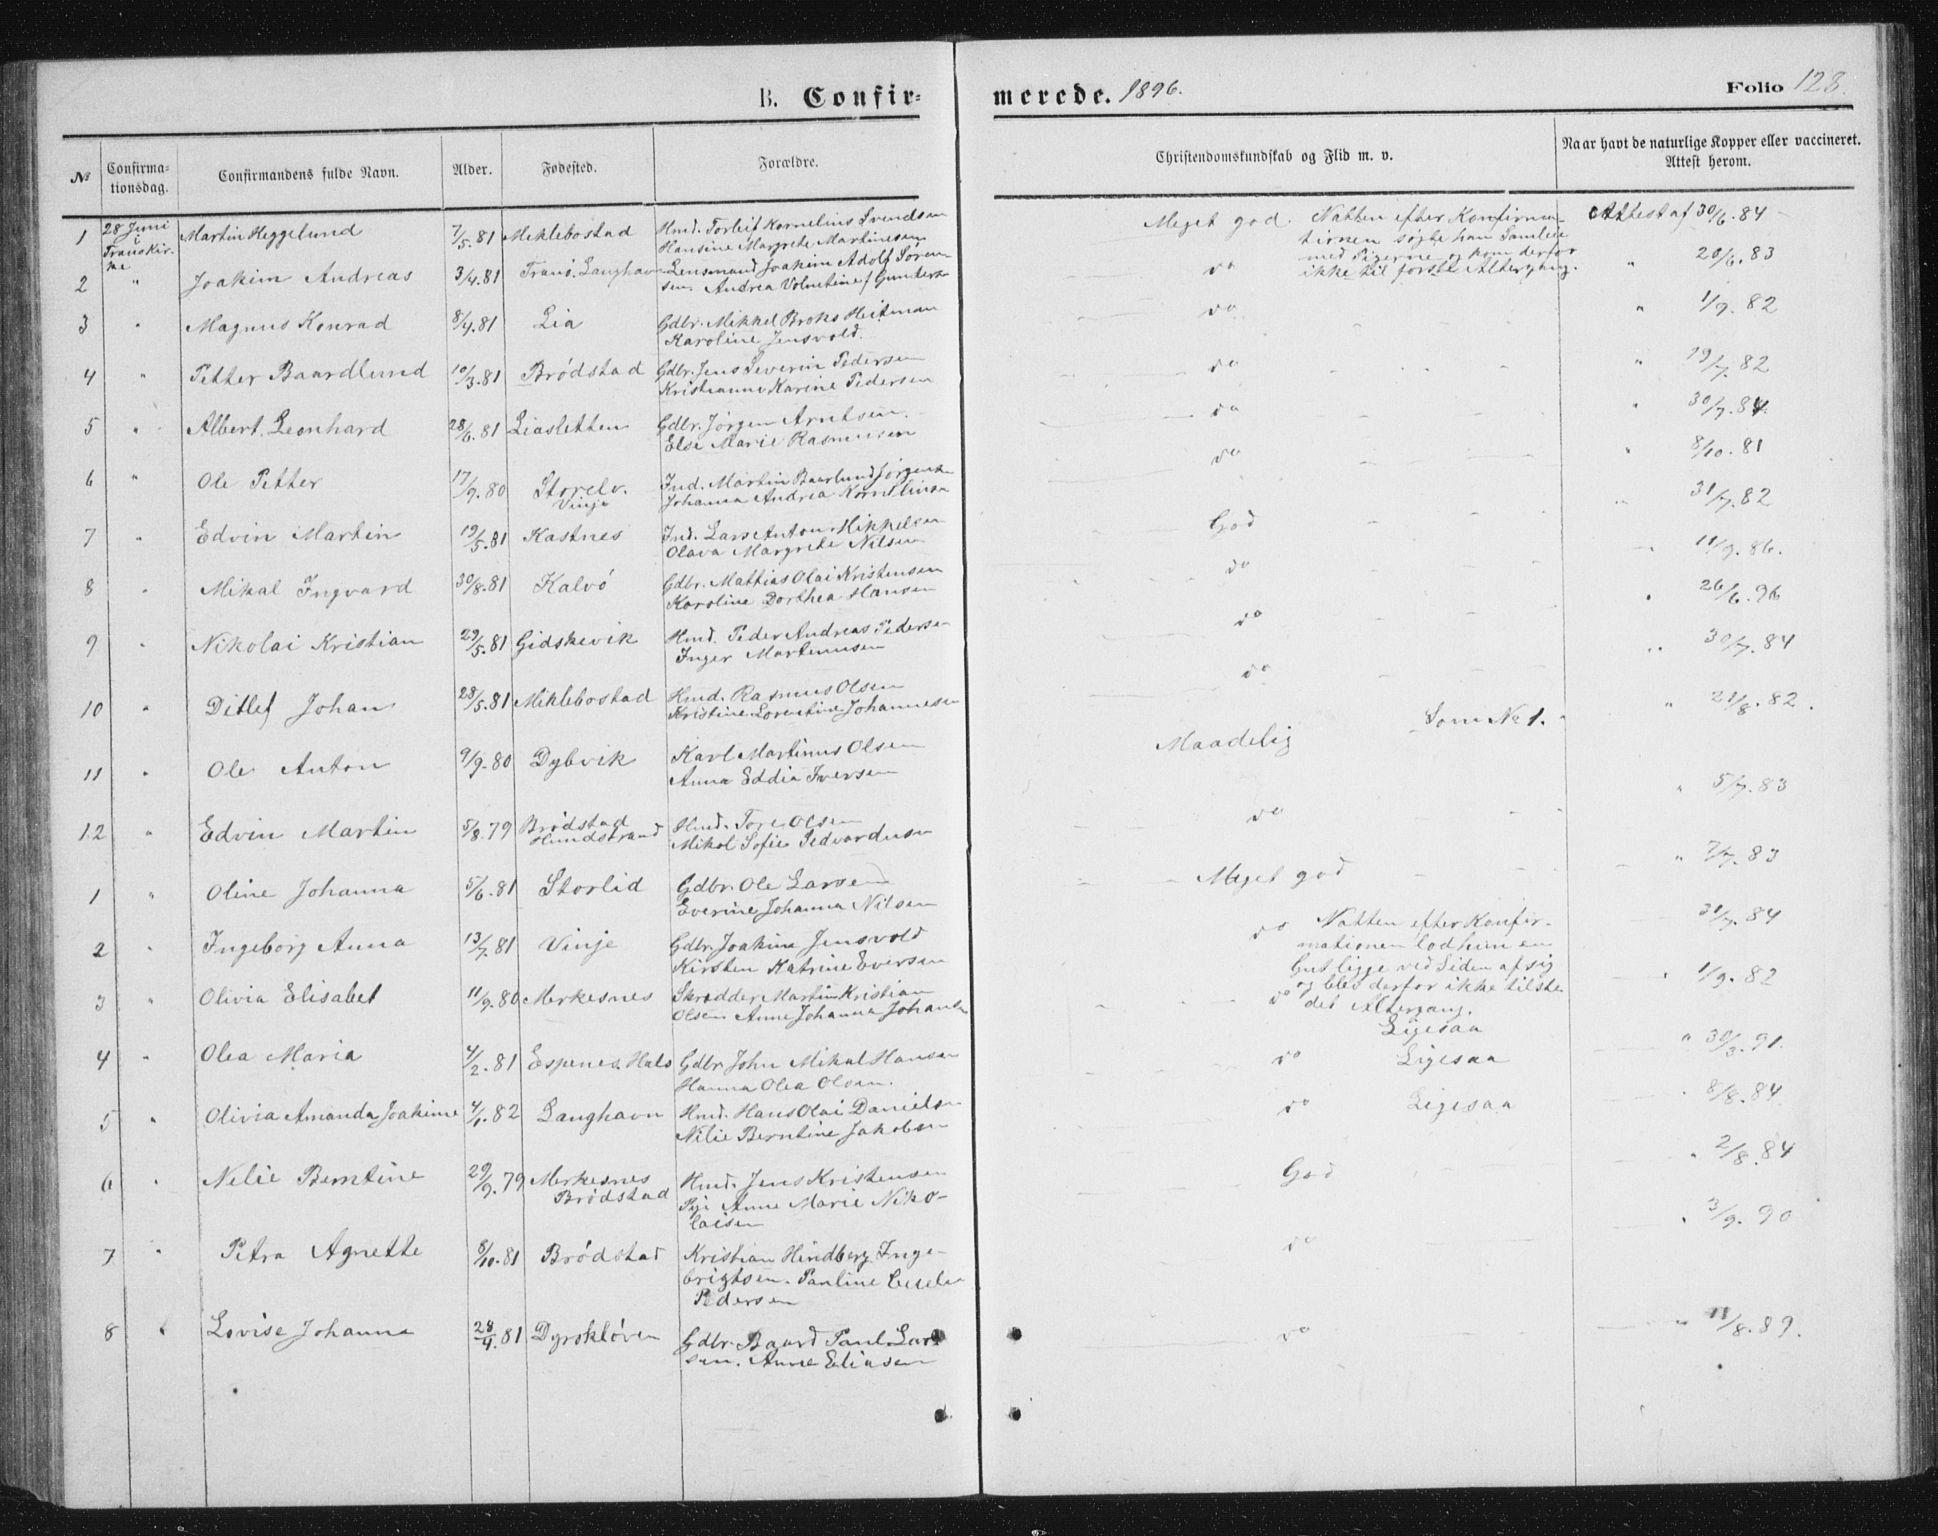 B. Confir=
merede. 1896.
Folio 128.
№ Confirma-tionsdag. Confirmandens fulde Navn. Alder. Fødested. Forældre. Christendomskundskab og Flid m. v. Naar havt de naturlige Kopper eller vaccineret. Attest herom.
1 28 Juni i Transkirke Martin Heggelund 7/5.81 Miklebostad Hmd. Torleif Kornelius Svendsen
Hansine Margrete Martinesen
Meget god. Natten efter Konfirma-
tionen søgte han Samleie
med Pigerne og kom derfor
ikke til første Altergang.
Attest af 30/6.84
2 " Joakim Andreas 3/4.81 Tranö. Langhavn Lensmand Joakim Adolf Søren-
sen. Andrea Gunders
do " 20/6.83
3 " Magnus Konrad 8/4.81 Lia Gdbr. Mikkel Broks Heitman
Karoline Jensvold.
do " 1/9.82
4 " Petter Baardlund 10/3.81 Brödstad Gdbr. Jens Severin Pedersen
Kristianna Karine Pedersen
do " 19/7.82
5 " Albert Leonhard 28/6.81 Liasletten Gdbr. Jørgen Arntsen.
Else Marie Rasmusen
do " 30/7.84.
6 " Ole Petter 17/9.80 Storelv. Vinje Ind. Martin Baarlund Jørgensen
Johanna Andrea Kornelius
do " 8/10.81
7 " Edvin Martin 19/5.81 Kastnes Ind. Lars Anton Mikkelsen
Olava Margrete Nilsen
God " 31/7.82
8 " Mikal Ingvard 30/8.81 Kalvö Gdbr. Mattias Olai Kristensen
Karoline Dorthea Hansen
do 11/9.86.
9 " Nikolai Kristian 29/5.81 Gidskevik Hmd. Peder Andreas Pedersen
Inger Martinusen
do " 26/6.96
10 " Ditlef Johan 28/5.81 Miklebostad Hmd. Rasmus Olsen
Kristine Lorentine Johannesen
do " 30/7.84
11 " Ole Anton 9/9.80 Dybvik Karl Martinus Olsen
Anna Eddia Iversen
Maadelig Som No 1. " 21/8.82.
12 " Edvin Martin 5/8.79 Brödstad
Hundstrand Hmd. Tore Olsen
Mikol Sofie Pedvardusen
do " 5/7.83
1 " Oline Johanna 5/6.81 Storlid Gdbr. Ole Larsen
Everine Johanna Nilsen
Meget god " 7/7.83
2 " Ingeborg Anna 13/7.81 Vinje Gdbr. Joakim Jensvold
Kirsten Katrine Eversen
do Natten efter Konfir-
mationen lod hun en
Gut ligge ved Siden af sig
og blev derfor ikke tilste-
det Altergang.
31/7.84
3 " Olivia Elisabet 11/9.80 Merkesnes Skrædder Martin Kristian
Olsen Anne Johanna Johans
do Ligesaa " 1/9.82
4 " Olea Maria 4/2.81 Espenes. Hals Gdbr. John Mikal Hansen
Hanna Olea Olsen.
do Ligesaa " 30/3.91.
5 " Olivia Amanda Joakime 4/1.82 Langhavn Hmd. Hans Olai Danielsen
Nilie Berntine Jakobsen
do Ligesaa " 8/8.84.
6 " Nelie Berntine 29/9.79 Merkesnes
Brödstad Hmd. Jens Kristensen
Pige Anne Marie Niko-
laisen
God " 2/8.84
7 " Petra Agnette 8/10.81 Brödstad Kristian Hindberg Inge-
brigtsen. Pauline
Pedersen
do " 3/9.90
8 " Lovise Johanna 28/4.81 Dyrskløven Gdbr. Baard Paul Lar-
sen. Anne Eliasen
do " 11/8.89.